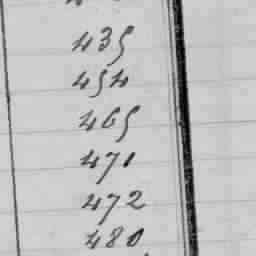 435
454
465
471
472
480